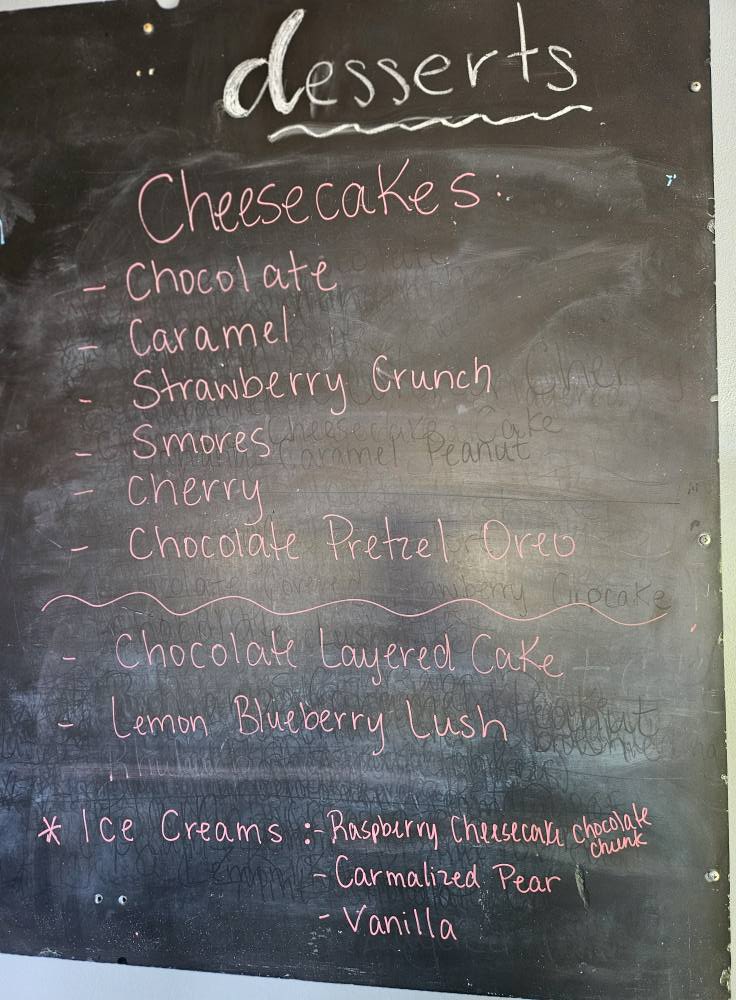 desserts
Cheesecakes:
- Chocolate
- Caramel
- Strawberry Crunch
- Smores
- Cherry
- Chocolate Pretzel Oreo
- Chocolate Layered Cake
- Lemon Blueberry Lush
* Ice Creams :- Raspberry Cheesecake chocolate chunk
- Carmalized Pear
- Vanilla